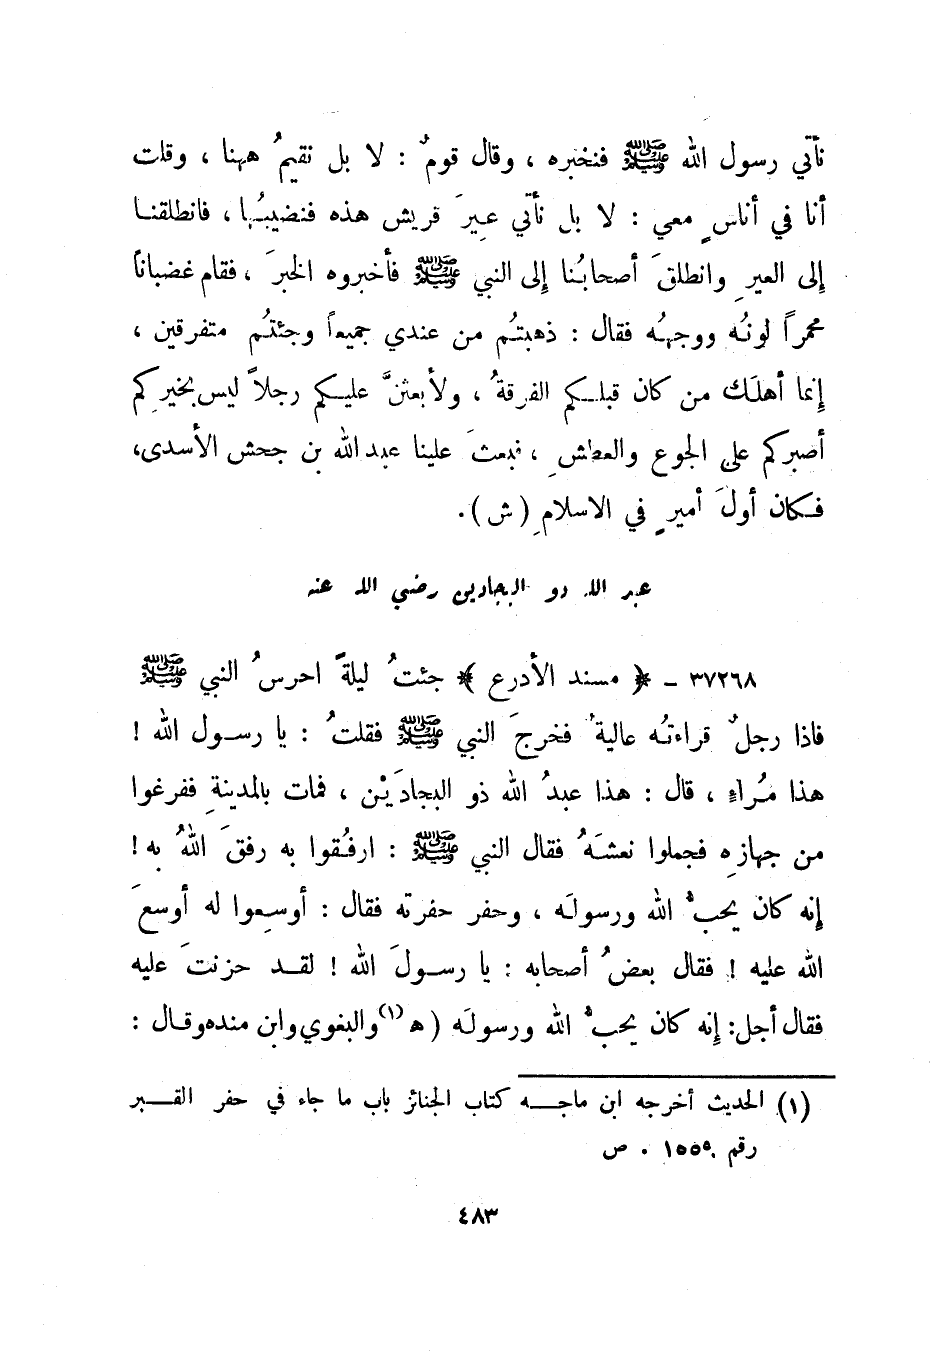 نأتي رسول الله ﷺ فنخبره ، وقال قومٌ : لا بل نقيمُ ههنا ، وقلت
أنا في أناسٍ معي : لا بل نأتي عيرَ قريش هذه فنصيبُها ، فانطلقنا
إلى العيرِ وانطلقَ أصحابُنا إلى النبي ﷺ فأخبروه الخبرَ ، فقام غضباناً
محمراً لونُه ووجهُه فقال : ذهبتُم من عندي جميعاً وجئتُم متفرقين ،
إنما أهلَك من كان قبلكم الفرقةُ ، ولأبعثنَّ عليكم رجلاً ليس بخيرِكم
أصبركم على الجوع والعطشِ ، فبعثَ علينا عبد الله بن جحش الأسدى،
فكان أولَ أميرٍ في الاسلامِ (ش).
عبد الله ذو البجادين رضي الله عنه
٣٧٢٦٨ ـ ﴿ مسند الأدرع ﴾ جئتُ ليلةً احرسُ النبي ﷺ
فاذا رجلٌ قراءتُه عاليةٌ فخرجَ النبي ﷺ فقلتُ : يا رسول الله !
هذا مُراءٍ ، قال : هذا عبدُ الله ذو البجادَيْن ، فمات بالمدينةِ ففرغوا
من جهازِه فحملوا نعشَهُ فقال النبي ﷺ : ارفُقوا به رفقَ اللهُ به !
إنه كان يحبُّ اللهَ ورسولَه ، وحفر حفرته فقال : أوسِعوا له أوسعَ
الله عليه ! فقال بعضُ أصحابه : يا رسولَ الله ! لقد حزنتَ عليه
فقال أجل: إنه كان يحبُّ الله ورسولَه (ه(١) والبغوي وابن منده وقال :
(١) الحديث أخرجه ابن ماجه كتاب الجنائز باب ما جاء في حفر القبر
رقم ١٥٥٩ . ص
٤٨٣